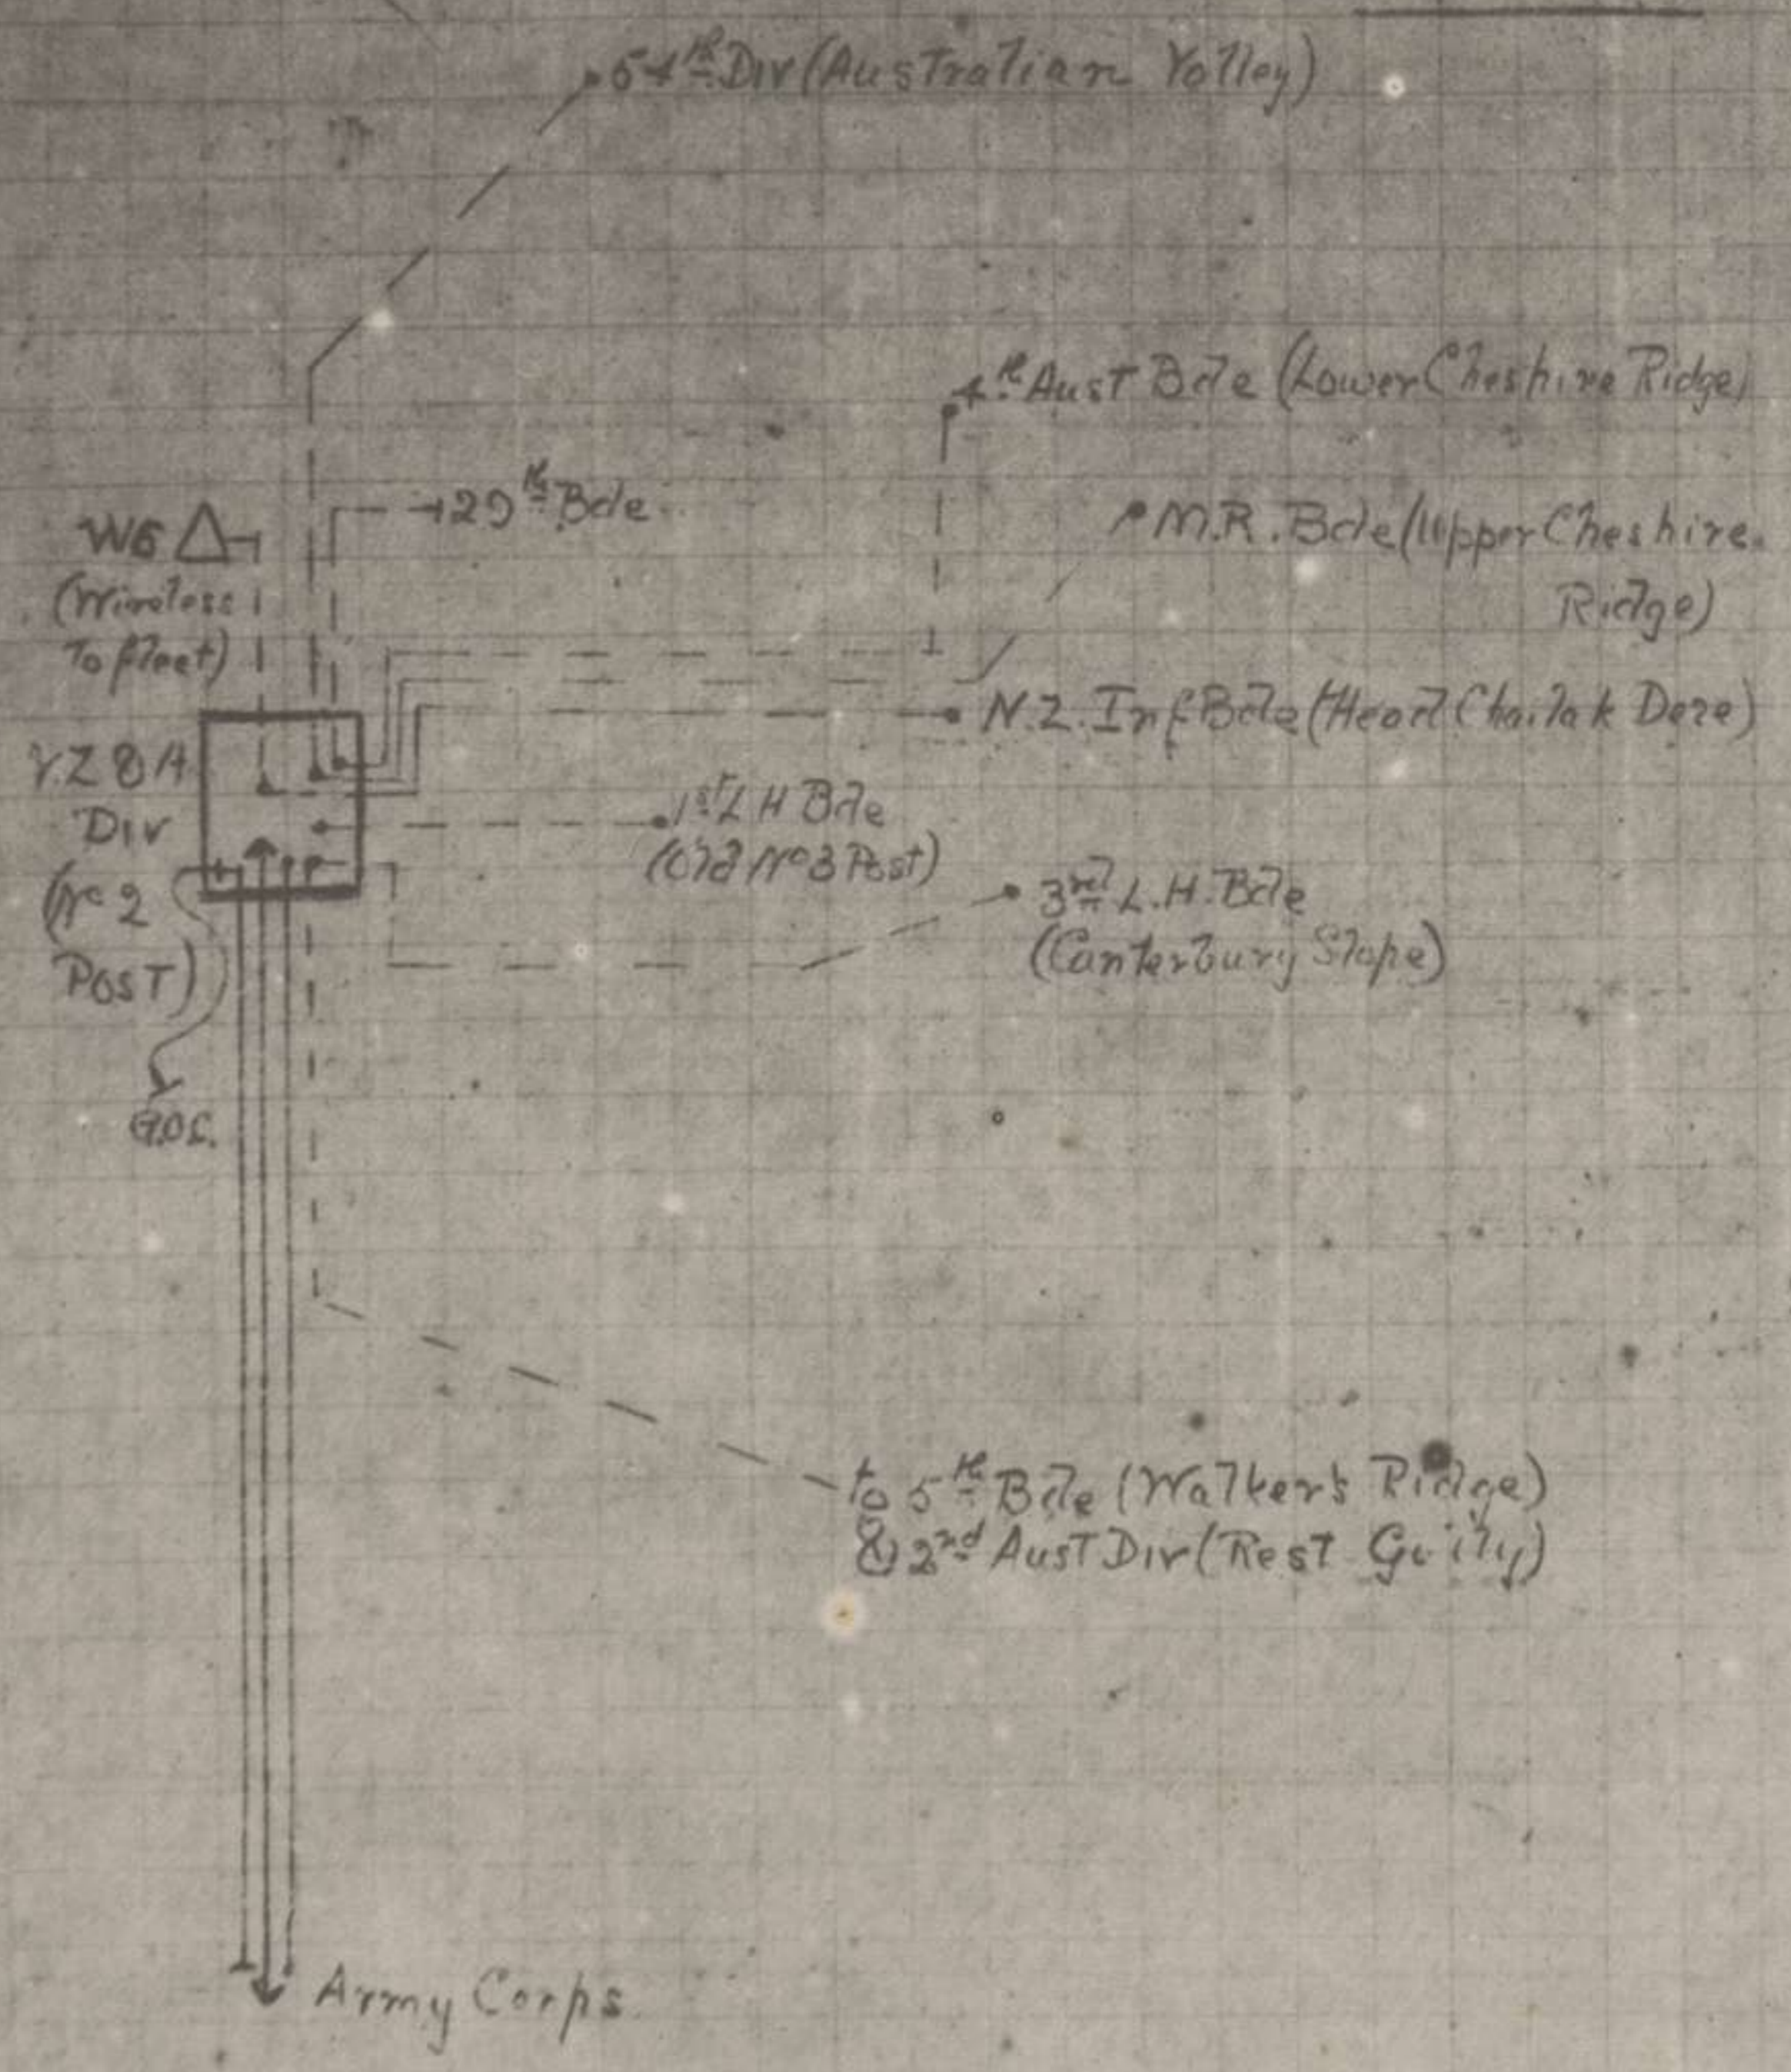 54th Div (Australian Valley)
4th Aust Bde (Lower Cheshire Ridge)
29th Bde
W6
(Wireless
To fleet)
M.R. Bde (Upper Cheshire
Ridge)
N.Z. Inf Bde (Head Chailak Dere)
N.Z & A
Div
(No 2
Post)
1st L H Bde
(Old No 3 Post)
3rd L.H. Bde
(Canterbury Slope)
G.O.C.
to 5th Bde (Walker's Ridge)
& 2nd Aust Div (Rest Gully)
Army Corps